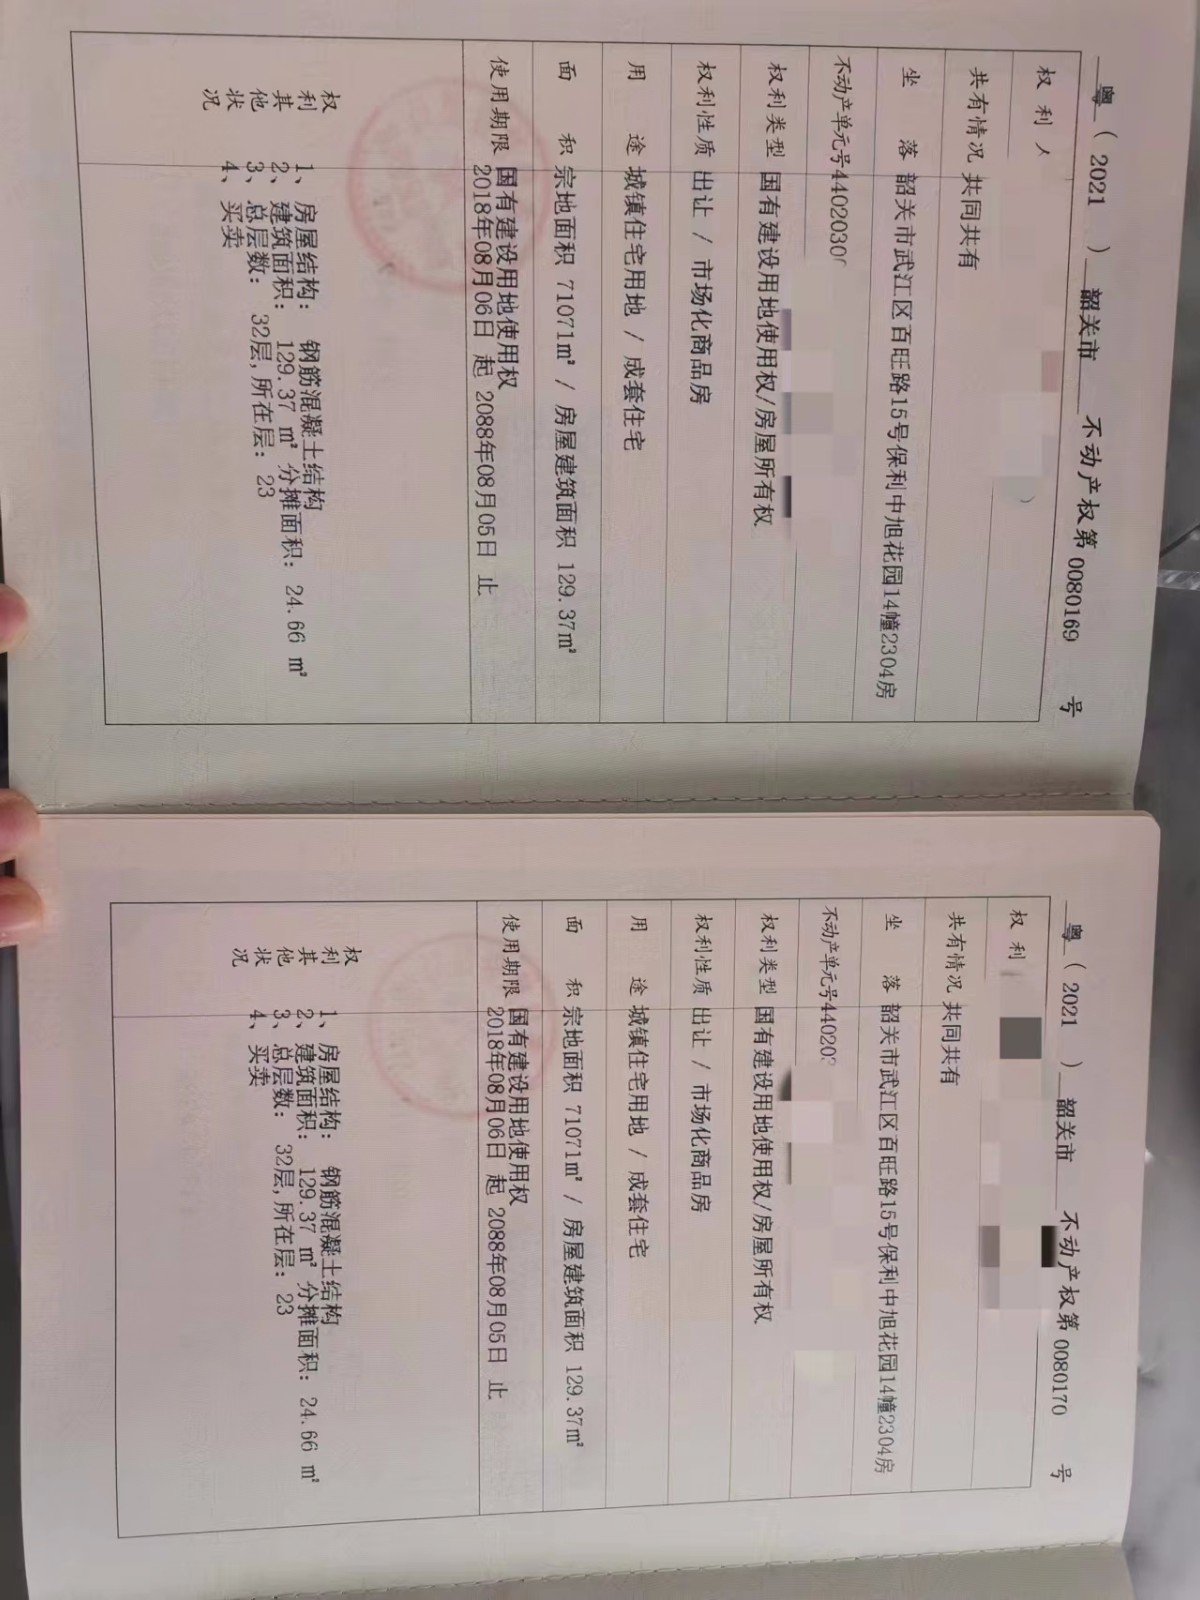 粤（2021）韶关市不动产权第0080169号
权利人
共有情况 共同共有
坐落 韶关市武江区百旺路15号保利中旭花园14幢2304房
不动产单元号 4402030
权利类型 国有建设用地使用权/房屋所有权
权利性质 出让 / 市场化商品房
用途 城镇住宅用地 / 成套住宅
面积 宗地面积 71071m² / 房屋建筑面积 129.37m²
使用期限 国有建设用地使用权
2018年08月06日 起 2088年08月05日 止
权利其他状况
1、房屋结构：钢筋混凝土结构
2、建筑面积：129.37 m² 分摊面积：24.66 m²
3、总层数：32层,所在层：23
4、买卖
粤（2021）韶关市不动产权第0080170号
权利
共有情况 共同共有
坐落 韶关市武江区百旺路15号保利中旭花园14幢2304房
不动产单元号 44020
权利类型 国有建设用地使用权/房屋所有权
权利性质 出让 / 市场化商品房
用途 城镇住宅用地 / 成套住宅
面积 宗地面积 71071m² / 房屋建筑面积 129.37m²
使用期限 国有建设用地使用权
2018年08月06日 起 2088年08月05日 止
权利其他状况
1、房屋结构：钢筋混凝土结构
2、建筑面积：129.37 m² 分摊面积：24.66 m²
3、总层数：32层,所在层：23
4、买卖